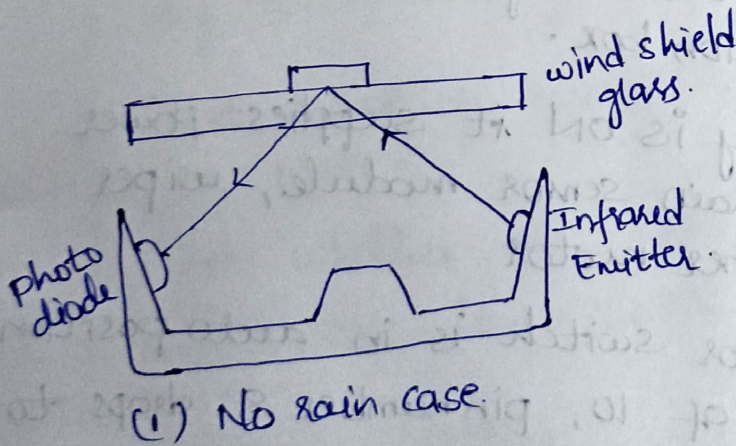 wind shield
glass.
Infrared
Emitter.
photo
diode
(1) No rain case.